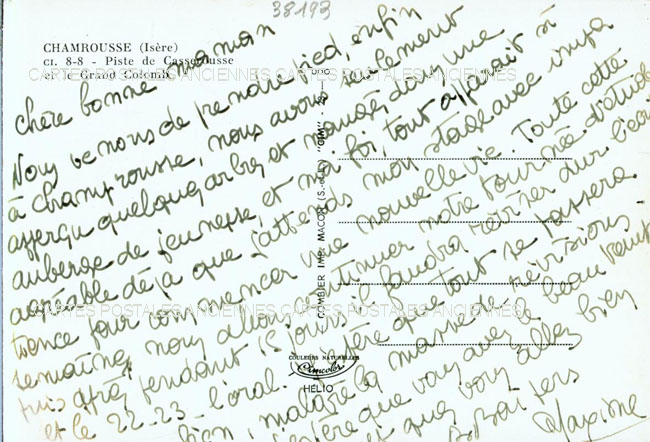 38193
CHAMROUSSE (Isère)
CI. 8-8 - Piste de Casserousse
et le Grand Colomb
CARTES POSTALES ANCIENNES CARTES POSTALES ANCIENNES CARTES POSTALES ANCIENNES
chère bonne maman
Nous venons de prendre pied, enfin
à Champrousse, nous avons seulement
apperçu quelques arbres et mangés dans une
auberge de jeunesse, et ma foi, tout apparait si
agréable déjà que j'attends mon stage avec impa
tience pour commencer une nouvelle vie. Toute cette
semaine, nous allons tinuer notre tournée d'étude
puis après pendant 15 jours il faudra réviser dur
et le 22-23 - l'oral. J'espère que tout se passera
bien, malgré la masse de révisions
J'espère que vous avez le beau temps
et que vous allez bien
Bons Baisers
Maxime
COMBIER IMP. MACON (S.-&-L.) "CIM"
CARTES POSTALES ANCIENNES CARTES POSTALES ANCIENNES CARTES POSTALES ANCIENNES
COULEURS NATURELLES
Cimcolor
HELIO